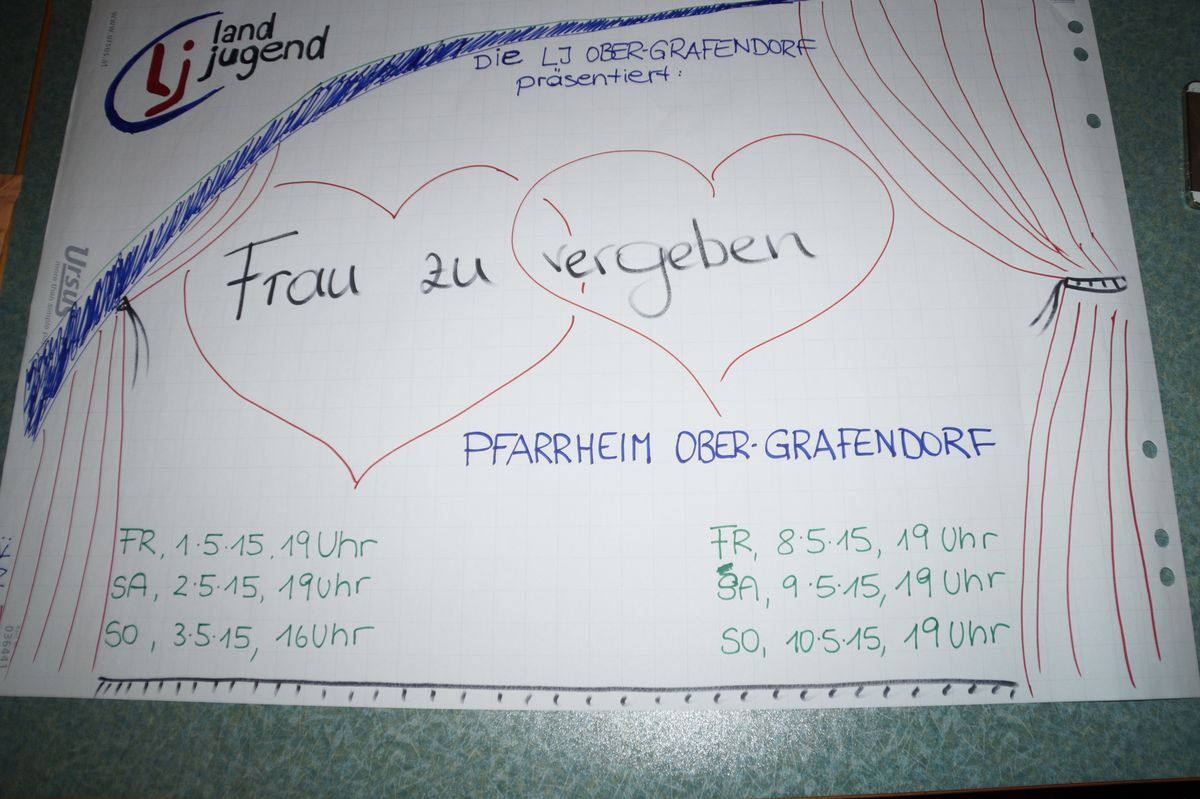 land
jugend
lj
Die LJ OBER-GRAFENDORF
präsentiert:
Frau zu vergeben
PFARRHEIM OBER-GRAFENDORF
FR, 1.5.15, 19 Uhr
SA, 2.5.15, 19 Uhr
SO, 3.5.15, 16 Uhr
FR, 8.5.15, 19 Uhr
SA, 9.5.15, 19 Uhr
SO, 10.5.15, 19 Uhr
www.ursus.at
Ursus
more than simple
036441